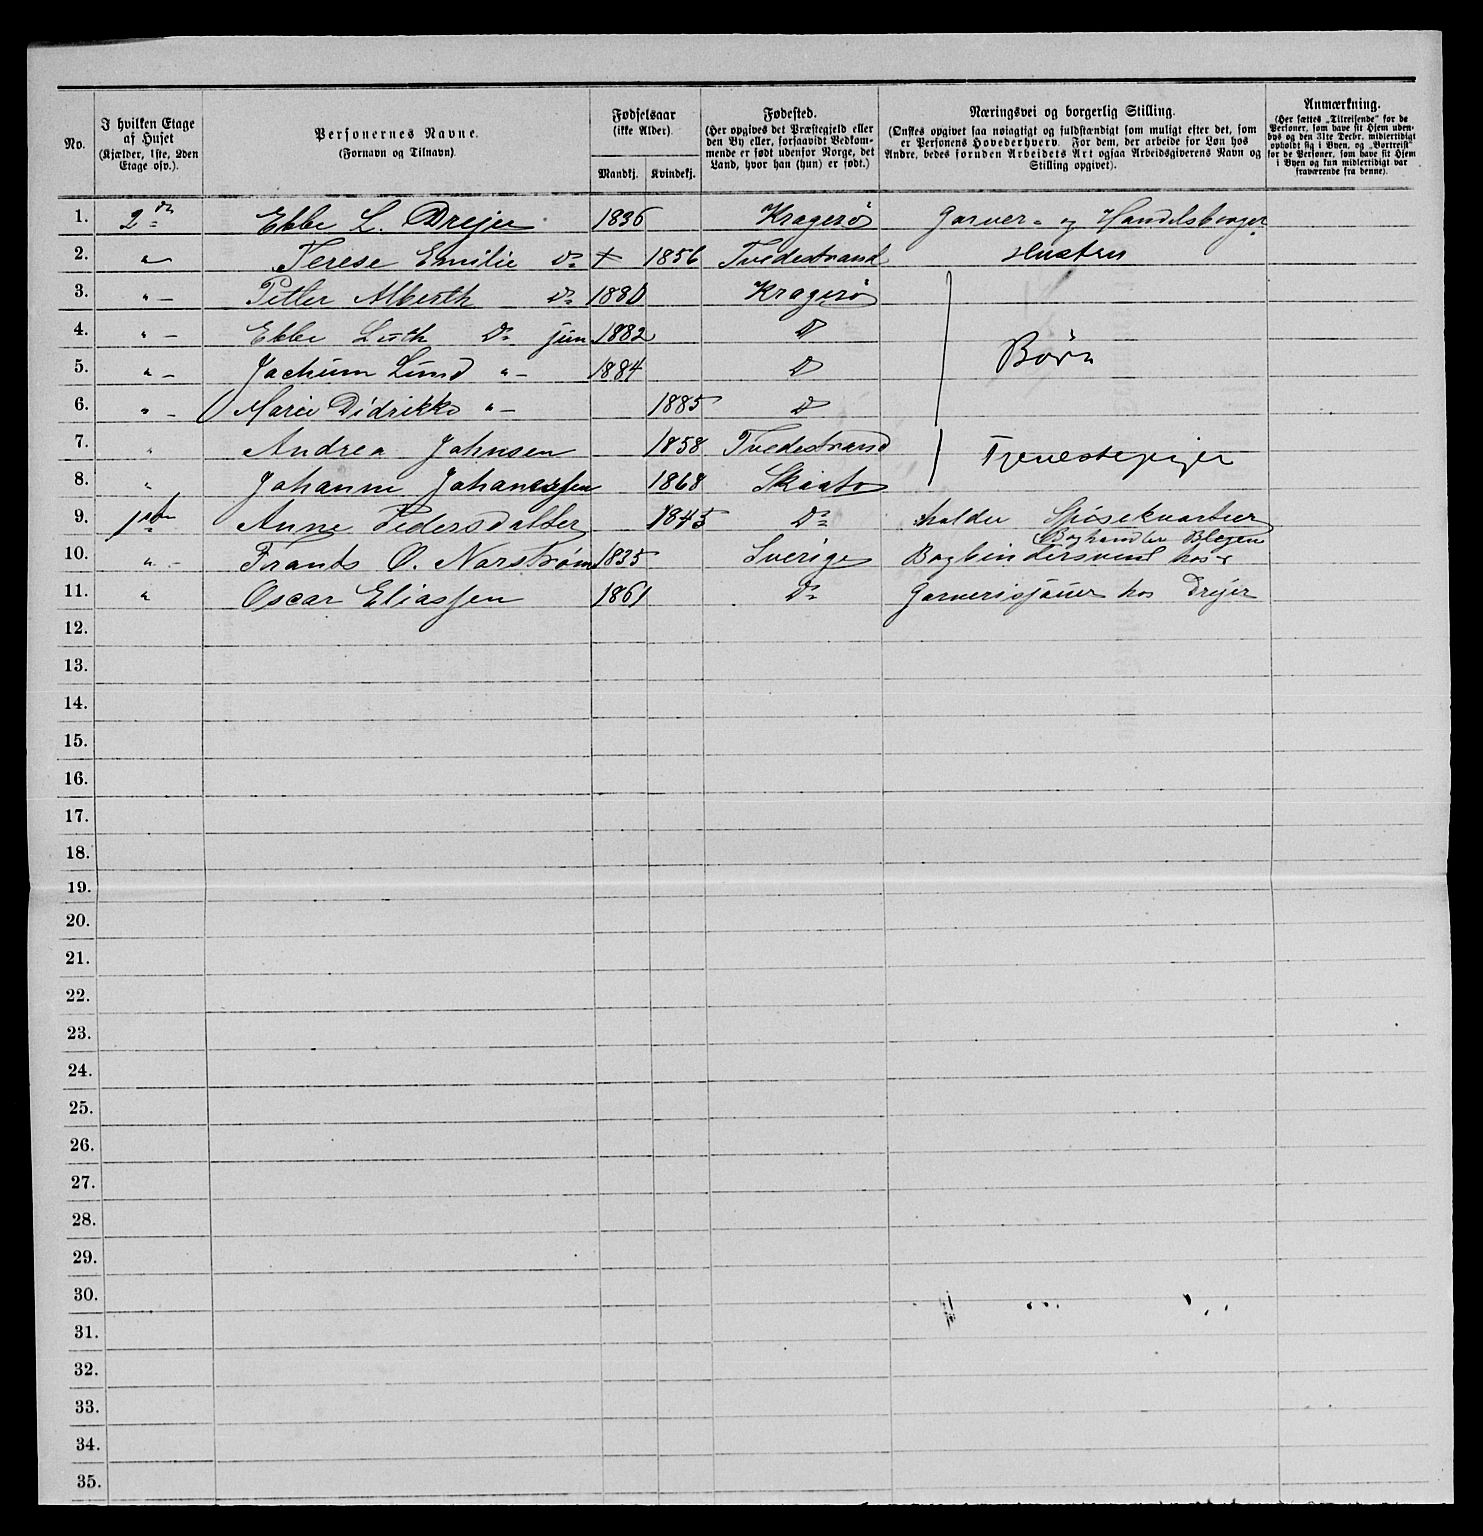 No.
I hvilken Etage
af Huset
(Kjælder, 1ste, 2den
Etage osv.).
Personernes Navne.
(Fornavn og Tilnavn).
Fødselsaar
(ikke Alder).
Mandkj. Kvindekj.
Fødested.
(Her opgives det Præstegjeld eller
den By eller, forsaavidt Vedkom-
mende er født udenfor Norge, det
Land, hvor han (hun) er født.)
Næringsvei og borgerlig Stilling.
(Ønskes opgivet saa nøiagtigt og fuldstændigt som muligt efter det, som
er Personens Hovederhverv. For dem, der arbeide for Løn hos
Andre, bedes foruden Arbeidets Art ogsaa Arbeidsgiverens Navn og
Stilling opgivet).
Anmærkning.
(Her sættes „Tilreisende“ for de
Personer, som have sit Hjem uden-
bys og den 31te Decbr. midlertidigt
opholdt sig i Byen, og „Bortreist“
for de Personer, som have sit Hjem
i Byen og kun midlertidigt var
fraværende fra denne).
1. 2den Ebbe L. Dreyer 1836 Kragerø Garver- og Handelsborger
2. " Terese Emilie Do + 1856 Tvedestrand Hustru
3. " — Petter Alberth Do 1880 Kragerø
4. " — Ebbe Do jun 1882 D
Børn
5. " — Jochum Lund " — 1884 D
6. " — Marie Didrikke " — 1885 D
7. " Andrea Johnsen 1858 Tvedestrand
Tjenestepiger
8. " Johanne Johannessen 1868 Skaato
9. 1ste Anne Pedersdatter 1845 Do holder Spisekvarteer
Boghandler Blegen
10. " — Frants O. Norstrøm 1835 Sverige Bogbindersvend hos
11. " Oscar Eliassen 1861 Do Garverisjauer hos Dreyer
12.
13.
14.
15.
16.
17.
18.
19.
20.
21.
22.
23.
24.
25.
26.
27.
28.
29.
30.
31.
32.
33.
34.
35.